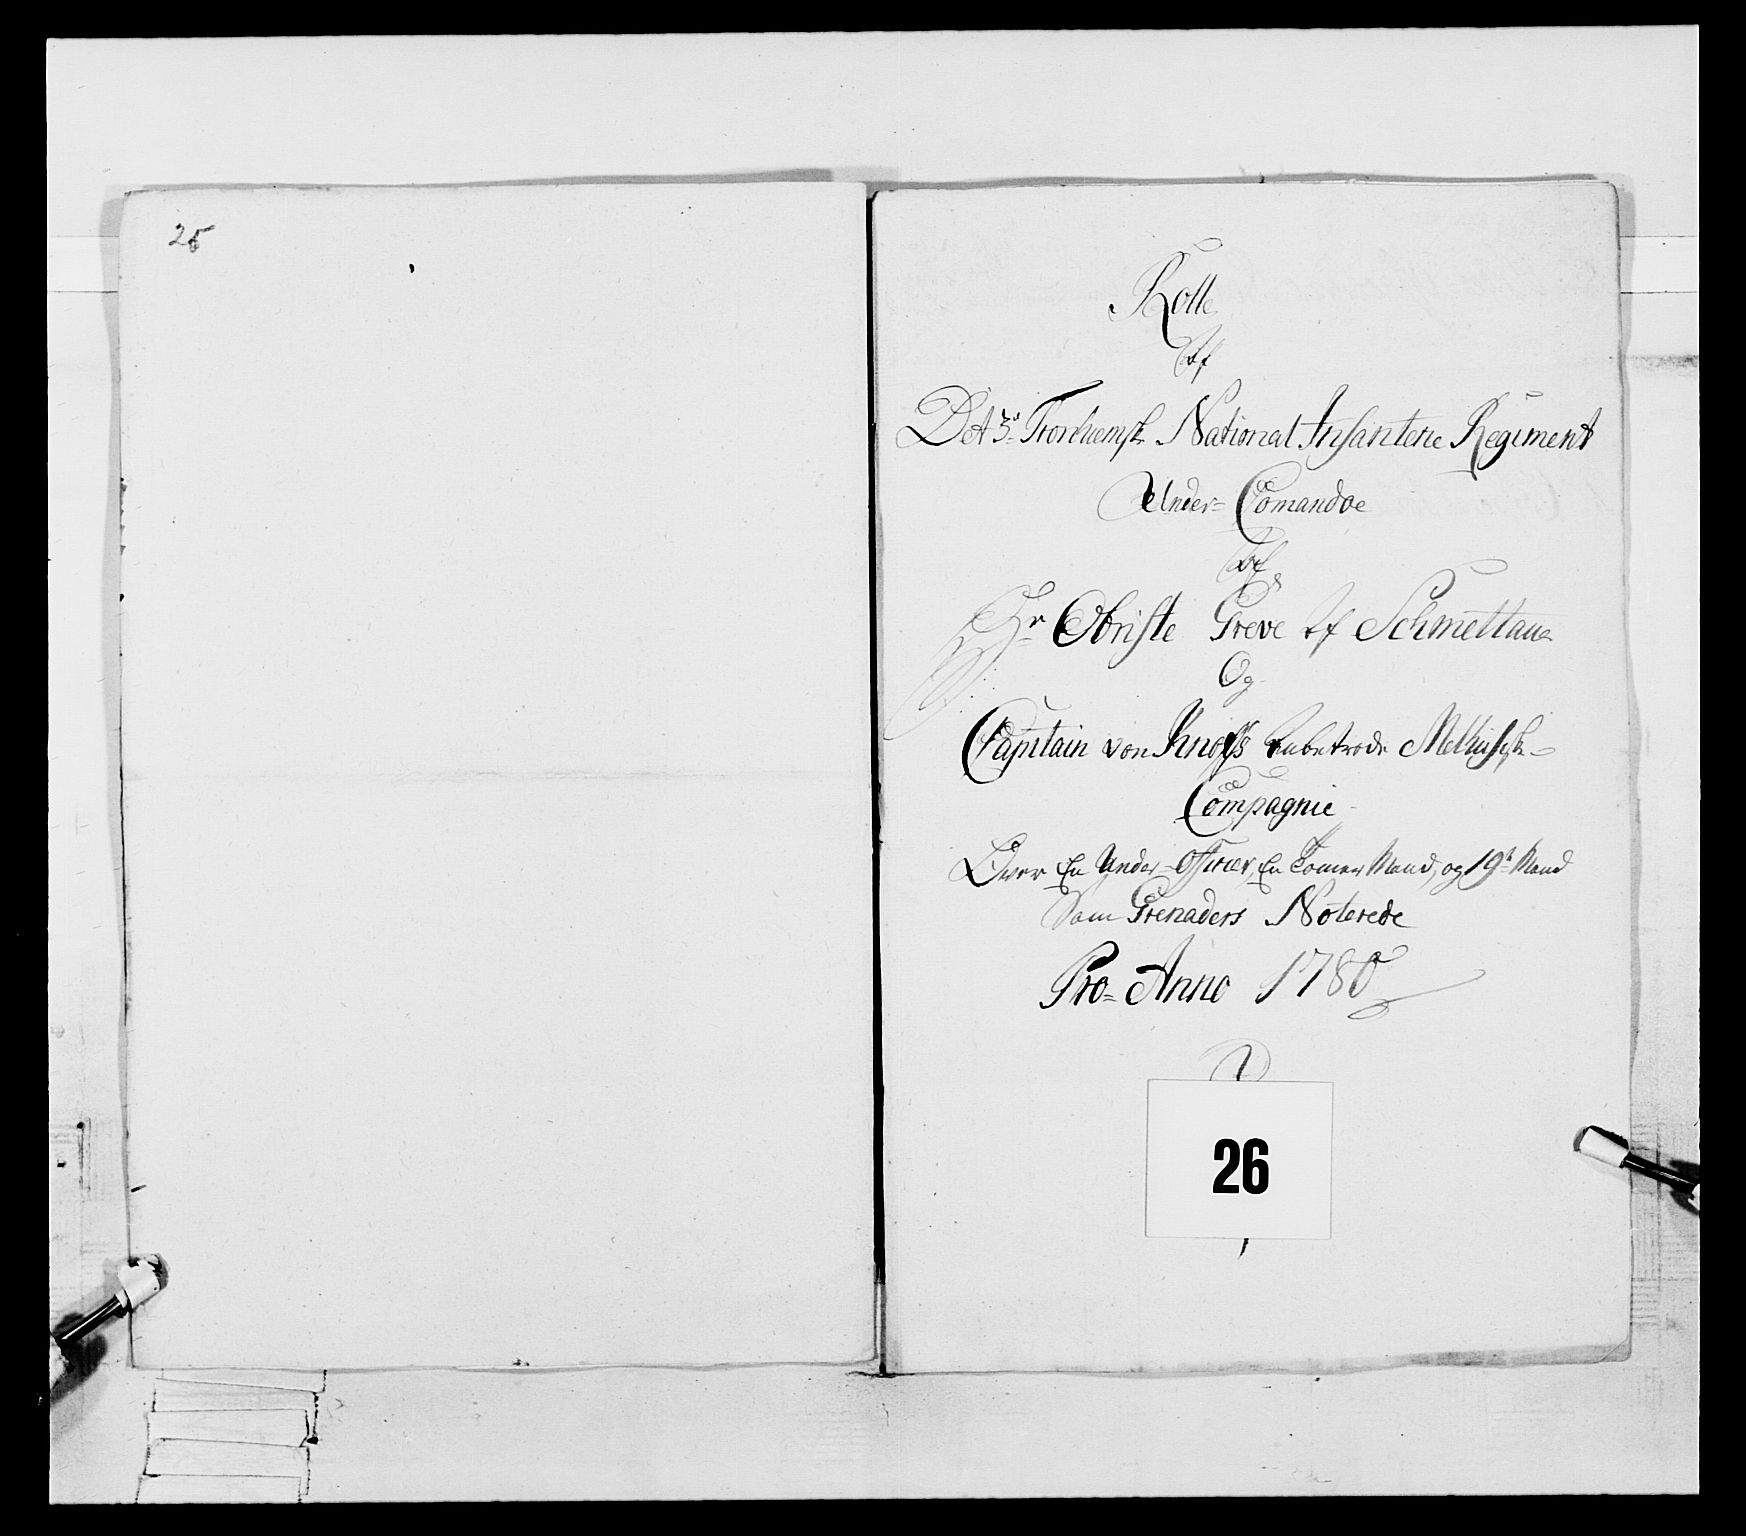 25
Rolle
Af
Det 3de Tronhiemsk National Infanterie Regiment
Under= Comandoe
Af
Hr Obriste Greve Af Schmettau
Og
Capitain von Knoffs anbetrode
Compagnie
Over En Under-Officier, En Mand, og 19 Mand
Som Grenaders Noterede
Pro= Anno 1780
26